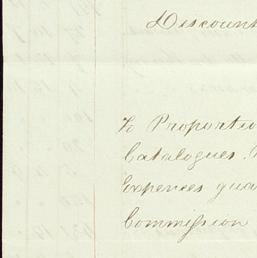 Discount
To Proportio
Catalogues.
Expences
Commission